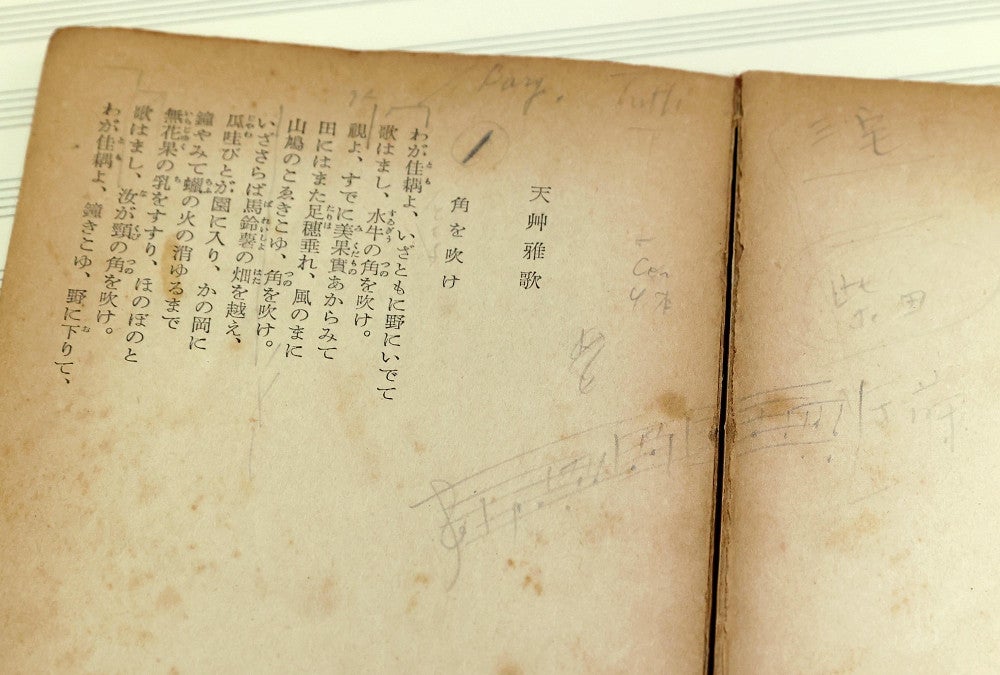 三宅
柴田
Tutti
天艸雅歌
角を吹け
わが佳耦よ、いざともに野にいでて
歌はまし、水牛の角を吹け。
視よ、すでに美果實あからみて
田にはまた足穗垂れ、風のまに
山鳩のこゑきこゆ、角を吹け。
いざさらば馬鈴薯の畑を越え、
瓜哇びとが園に入り、かの岡に
鐘やみて蠟の火の消ゆるまで
無花果の乳をすすり、ほのぼのと
歌はまし、汝が頸の角を吹け。
わが佳耦よ、鐘きこゆ、野に下りて、